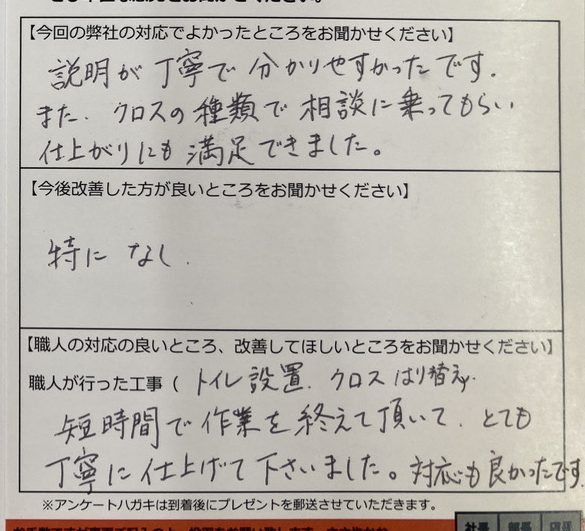 【今回の弊社の対応でよかったところをお聞かせください】
説明が丁寧で分かりやすかったです.
また、クロスの種類で相談に乗ってもらい
仕上がりにも満足できました。
【今後改善した方が良いところをお聞かせください】
特になし.
【職人の対応の良いところ、改善してほしいところをお聞かせください】
職人が行った工事（トイレ設置、クロスはり替え
短時間で作業を終えて頂いて、とても
丁寧に仕上げて下さいました。対応も良かったです
※アンケートハガキは到着後にプレゼントを郵送させていただきます。
社長 部長 店